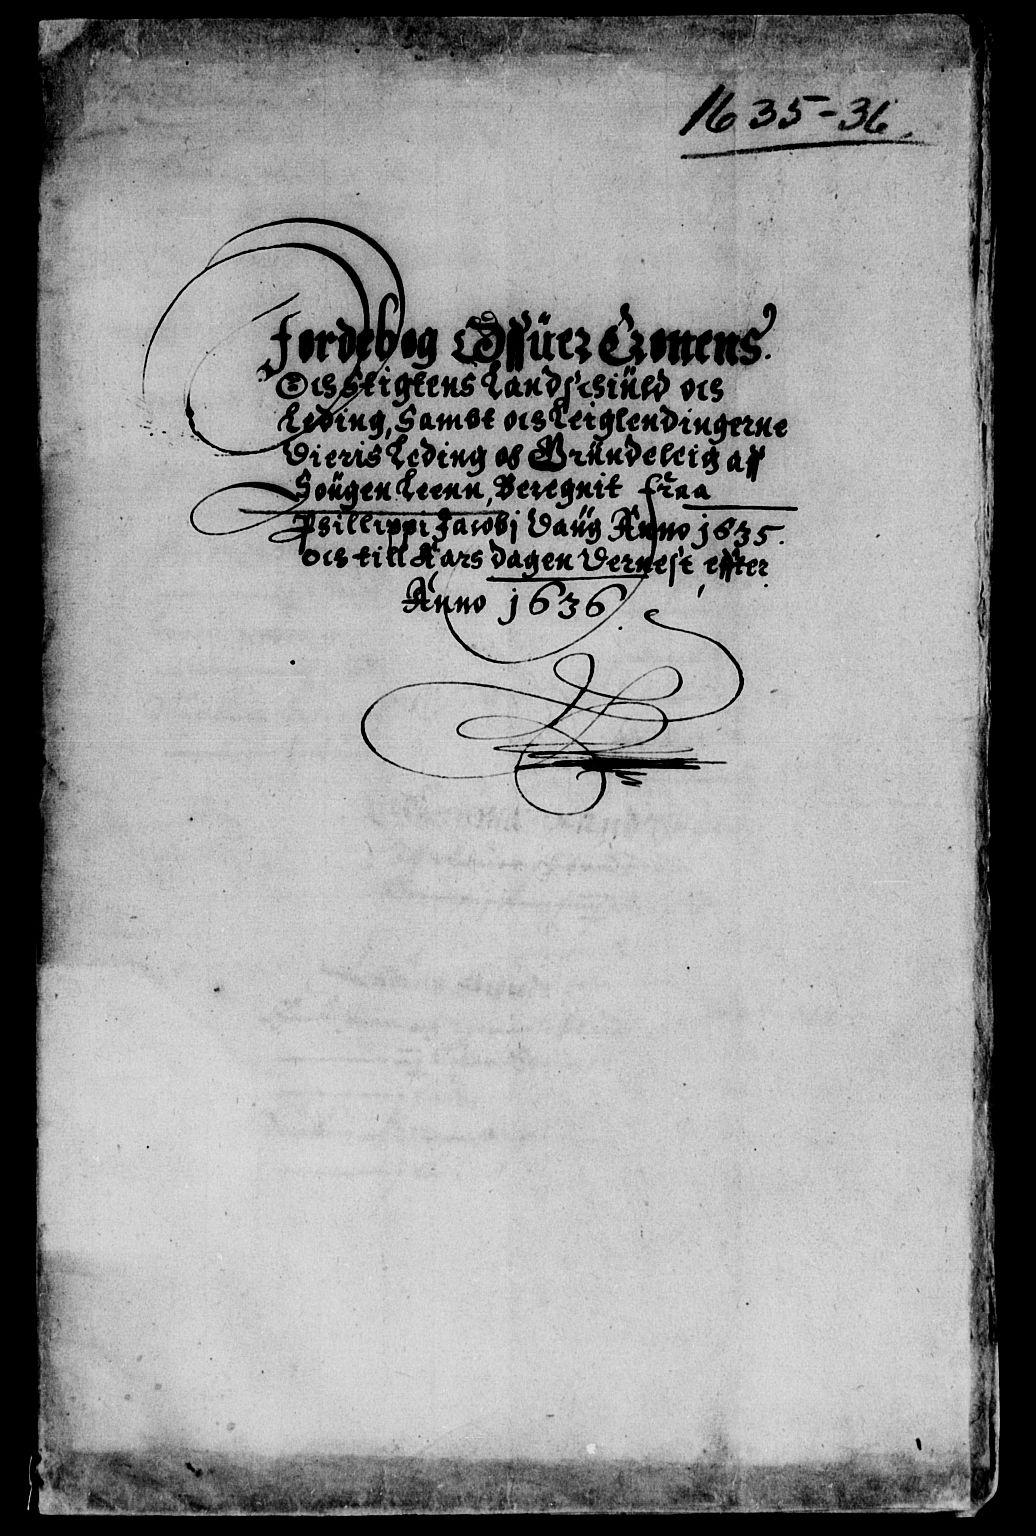 1635-36.
Jordebog Offüer Cronens
Och Stigtens Landschiüld och
Leding, Sambt och Leiglendingerne
Dieris Leding og Gründeleig aff
Sougen Leenn, Beregnit fraa
Phillippi Jacobj Daug Anno 1635.
Och till Aars dagen Dernest effter
Anno 1636.